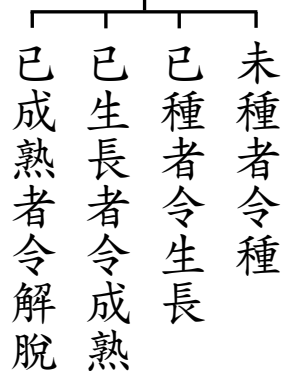 未種者令種
已種者令生長
已生長者令成熟
已成熟者令解脫